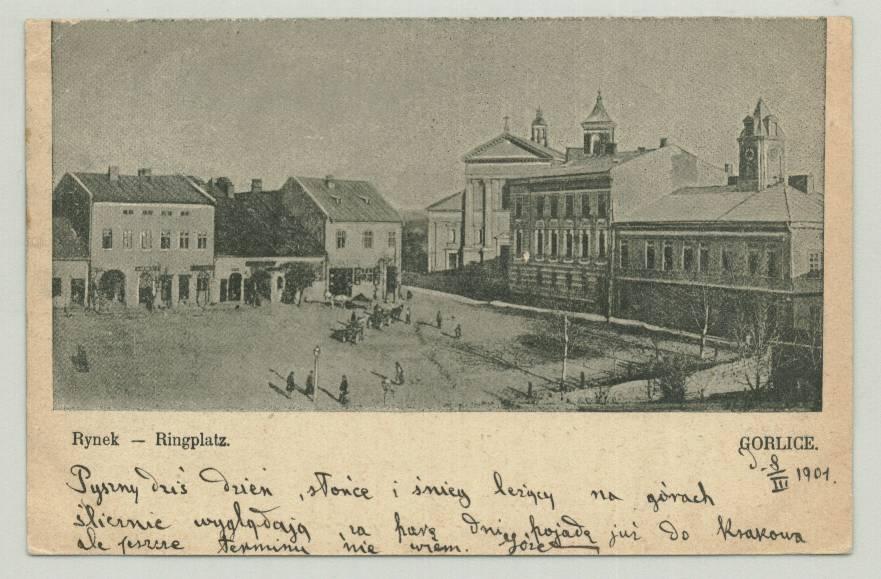 Rynek — Ringplatz.
GORLICE.
D. 8/III 1901.
Pyszny dziś dzień, słońce i śnieg leżący na górach
ślicznie wyglądają za parę dni pojadę już do Krakowa
ale jeszcze terminu nie wiem. Józef